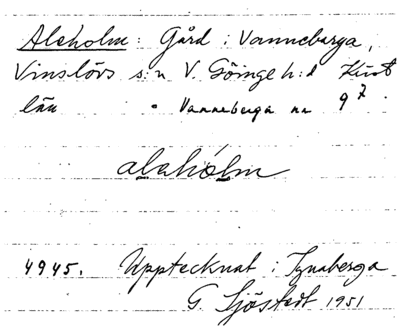 Alsholm: Gård i Vanneberga,
Vinslövs s:n V. Göinge h:d Krist
län • Vanneberga nr 9⁷.
alshólm
4945. Upptecknat i Ignaberga
G. Sjöstedt 1951